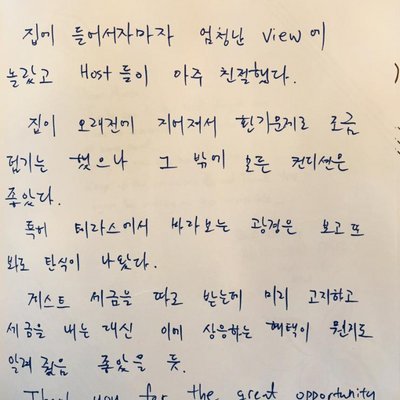 집에 들어서자마자 엄청난 view에
놀랐고 Host들이 아주 친절했다.
집이 오래전에 지어져서 환기문제로 조금
덥기는 했으나 그 밖에 모든 컨디션은
좋았다.
특히 테라스에서 바라보는 광경은 보고 또
봐도 탄식이 나왔다.
게스트 세금을 따로 받는데 미리 고지하고
세금을 내는 대신 이에 상응하는 혜택이 뭔지도
알려줬음 좋았을 듯.
Thank you for the great opportunity